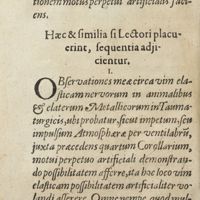 tionem motus perpetui artificialis faci-
ens.
Hæc & similia si Lectori placu-
erint, sequentia adji-
cientur.
I.
OBservationes meæ circa vim ela-
sticam nervorum in animalibus
& elaterum Metallicorum in Tauma-
turgiis, ubi probatur, sicut impetum, seu
impulsum Atmosphæræ per ventilabrū,
juxta præcedens quartum Corollarium,
motui perpetuo artificiali demonstrā-
do possibilitatem afferre, ita hoc loco vim
elasticam possibilitatem artificialiter vo-
landi asserere. Omne nempe, quod